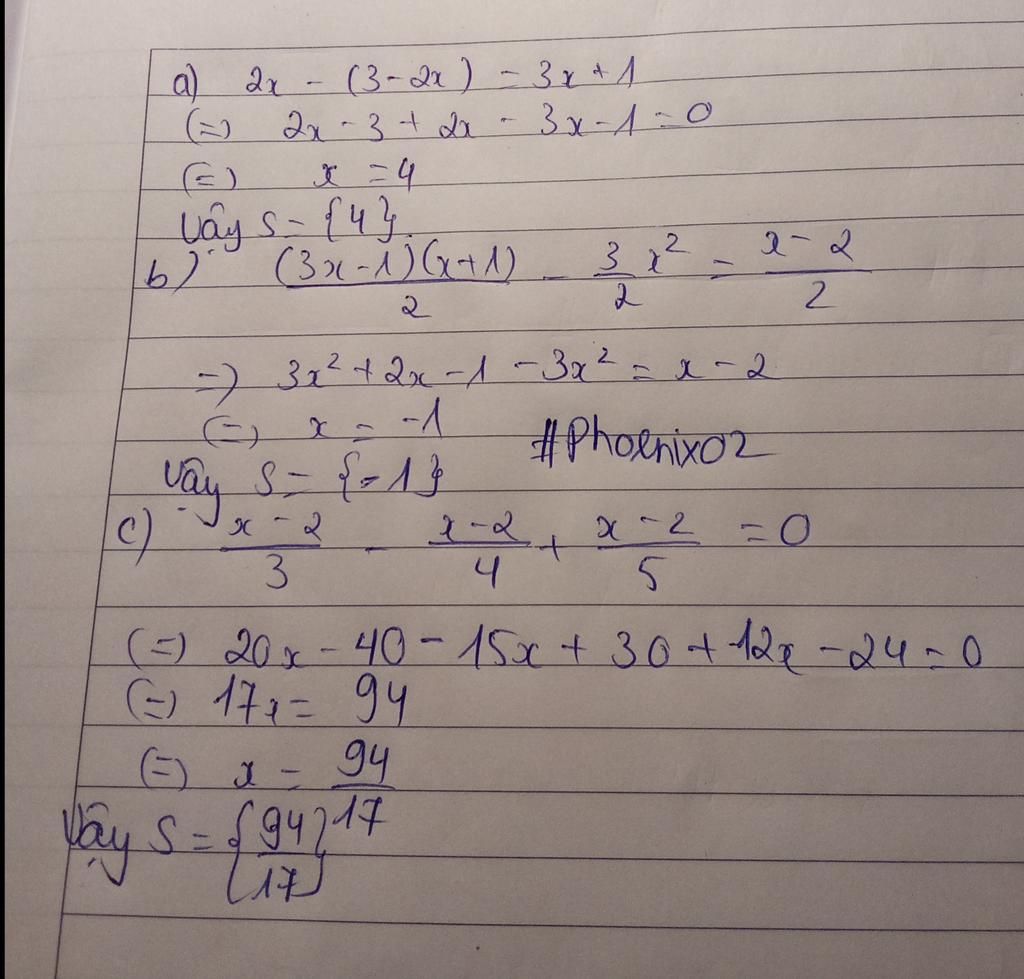 a) 2x - (3 - 2x) = 3x + 1
(=) 2x - 3 + 2x - 3x - 1 = 0
(=) x = 4
Vậy S = {4}.
b) (3x - 1)(x + 1)/2 - 3/2 x² = x - 2/2
=) 3x² + 2x - 1 - 3x² = x - 2
(=) x = -1
#Phoenix02
Vậy S = {-1}
c) x - 2/3 - x - 2/4 + x - 2/5 = 0
(=) 20x - 40 - 15x + 30 + 12x - 24 = 0
(=) 17x = 94
(=) x = 94/17
Vậy S = {94/17}